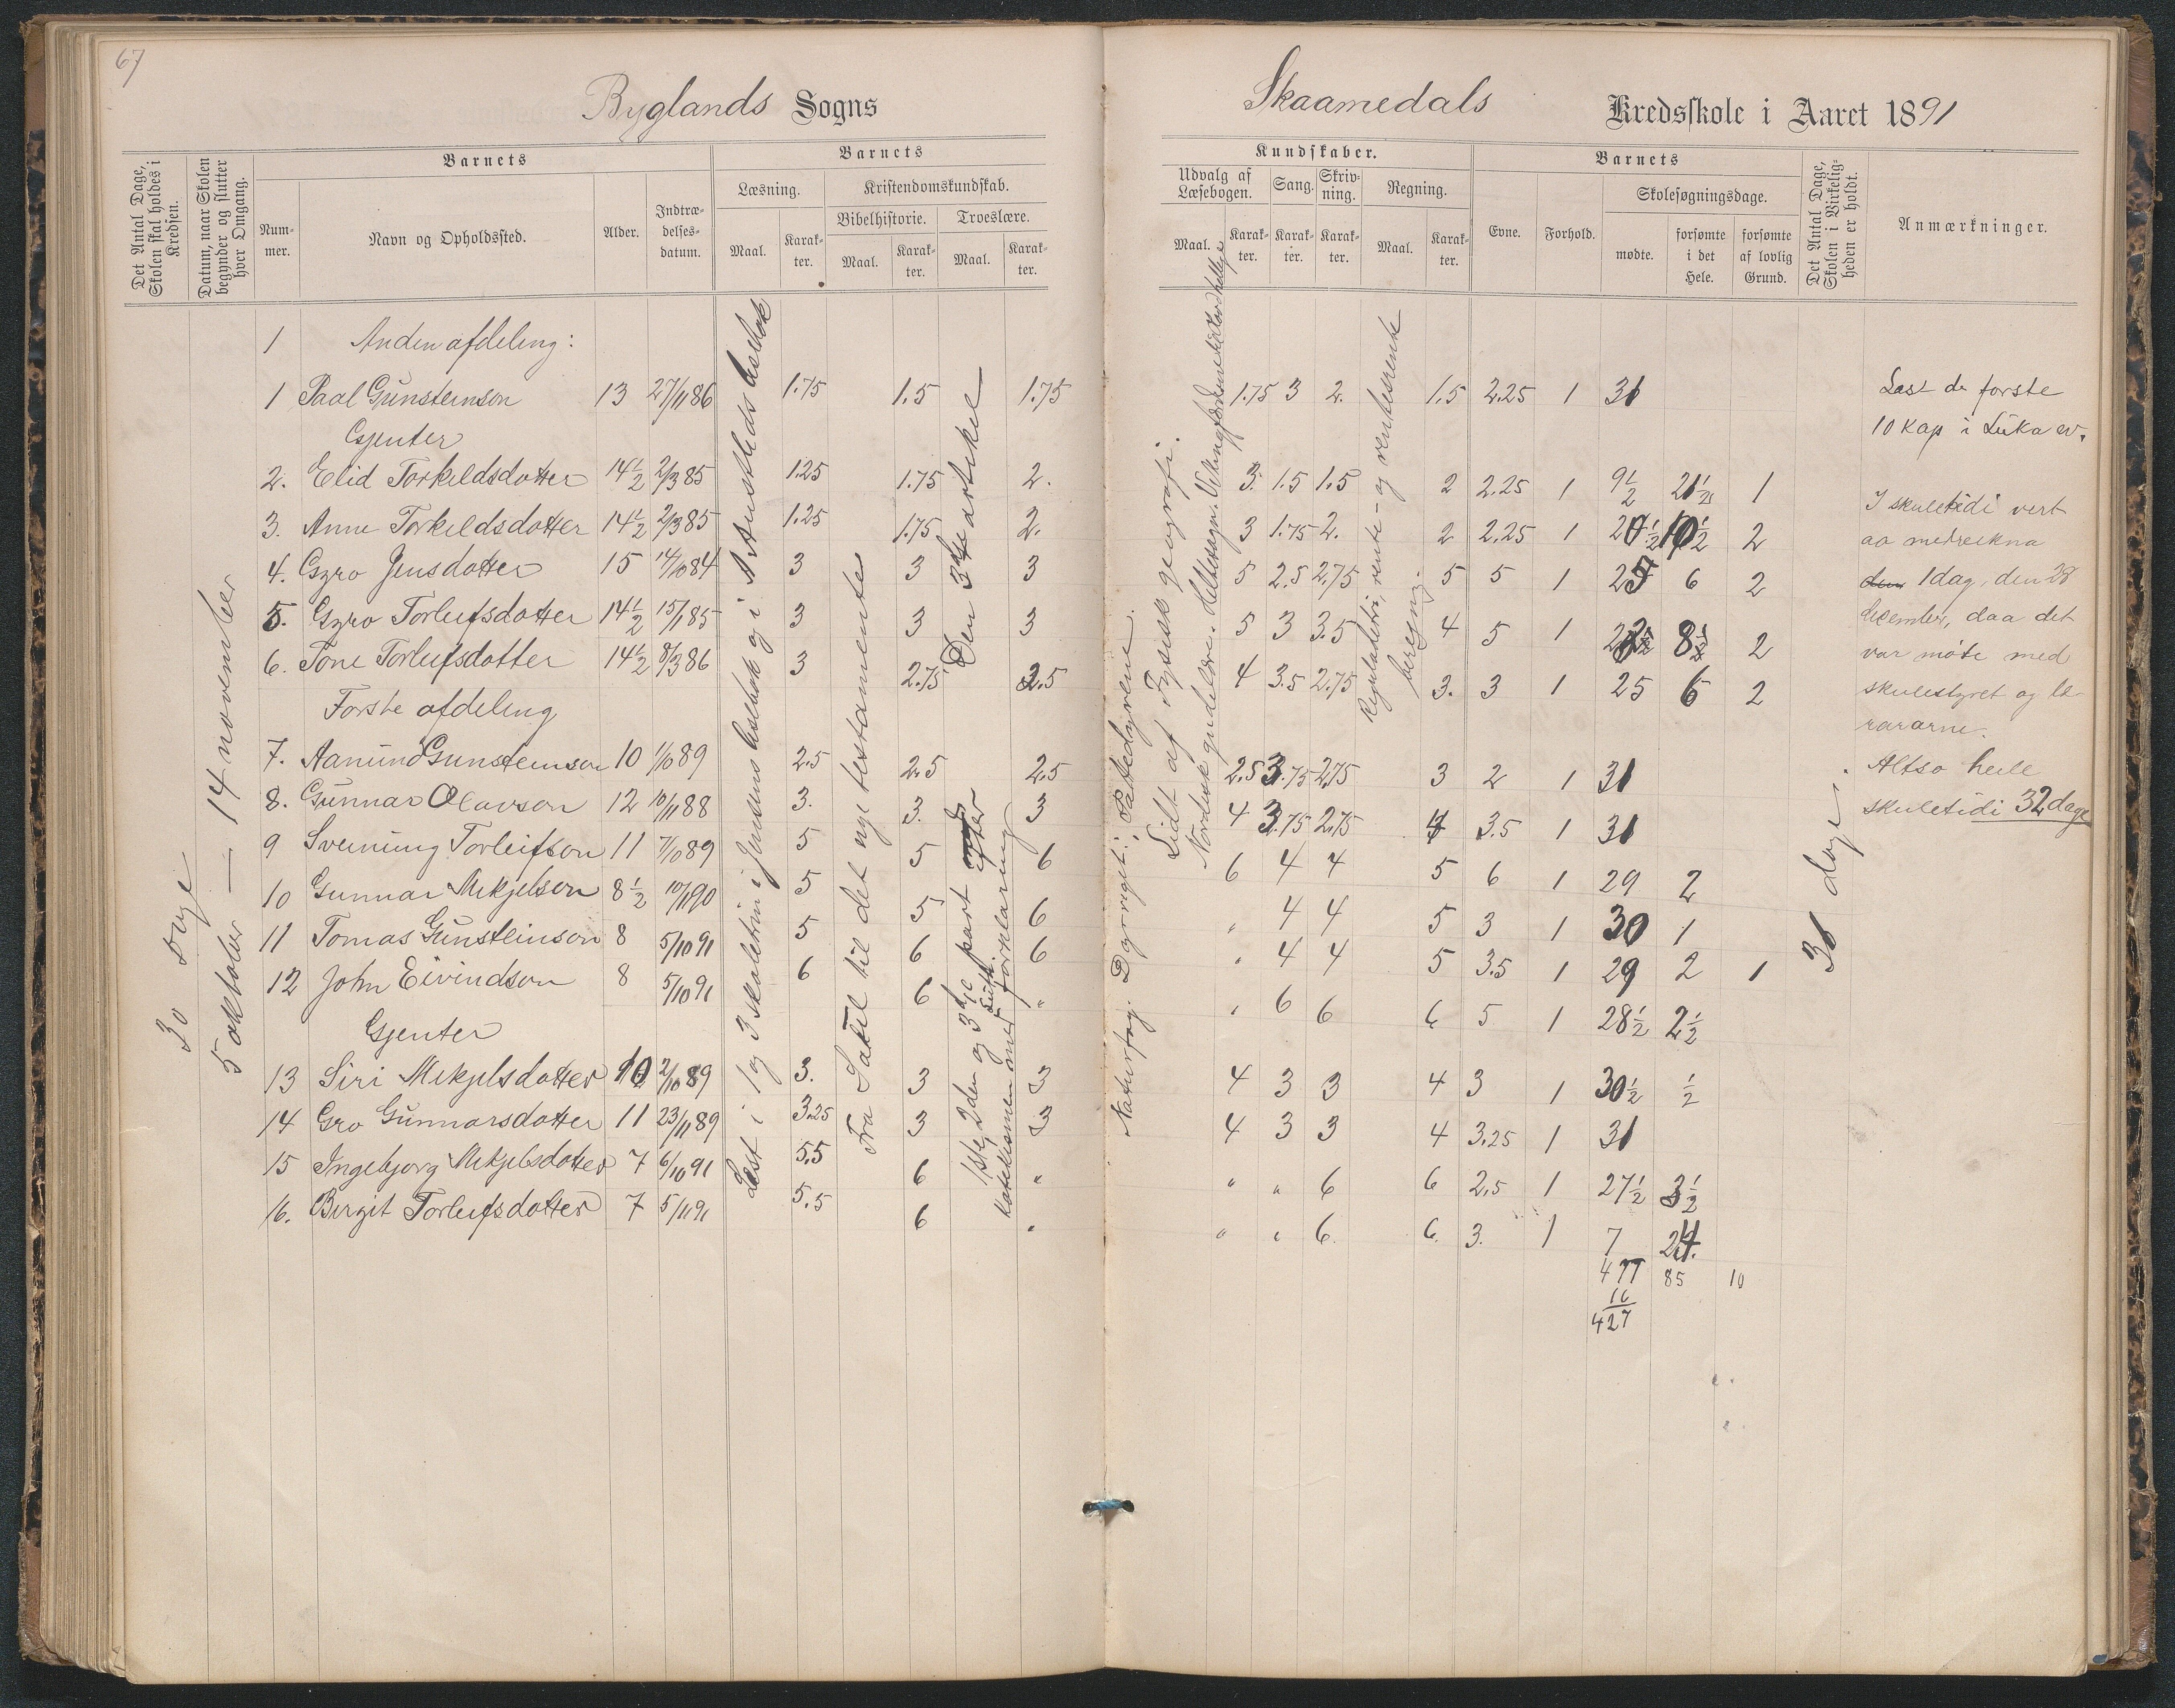 67
Byglands Sogns
Skaamedals Kredsskole i Aaret 1891
Det Antal Dage, Skolen skal holdes i Kredsen.
Datum, naar Skolen begynder og slutter hver Omgang.
Barnets
Nummer.
Navn og Opholdssted.
Alder.
Indtrædelsesdatum.
Barnets
Læsning.
Maal.
Karakter.
Kristendomskundskab.
Bibelhistorie.
Maal.
Karakter.
Troeslære.
Maal.
Karakter.
Kundskaber.
Udvalg af Læsebogen.
Maal.
Karakter.
Sang.
Karakter.
Skrivning.
Karakter.
Regning.
Maal.
Karakter.
Barnets
Evne.
Forhold.
Skolesøgningsdage.
mødte.
forsømte i det Hele.
forsømte af lovlig Grund.
Det Antal Dage, Skolen i Virkeligheden er holdt.
Anmærkninger.
30 dage
5 oktober — 14 november
1 Anden afdeling:
1 Paal Gunsteinson 13 27/11 86 1.75 1.5 1.75 1.75 3 2. 1.5 2.25 1 31
Gjenter
2. Elid Torkeldsdotter 14 1/2 2/3 85 1.25 1.75 2. 3. 1.5 1.5 2 2.25 1 9 1/2 21 1/2 1
3. Anne Torkeldsdotter 14 1/2 2/3 85 1.25 1.75 2. 3 1.75 2. 2 2.25 1 20 1/2 10 1/2 2
4. Gyro Jensdotter 15 14/10 84 3 3 3 5 2.5 2.75 5 5 1 25 6 2
5. Gyro Torleifsdotter 14 1/2 15/1 85 3 3 3 5 3 3.5 4 5 1 22 1/2 8 1/2 2
6. Tone Torleifsdotter 14 1/2 8/3 86 3 2.75 2.5 4 3.5 2.75 3. 3 1 25 6 2
Første afdeling
7. Aamund Gunsteinson 10 1/10 89 2.5 2.5 2.5 2.5 3.75 2.75 3 2 1 31
8. Gunnar Olavson 12 10/11 88 3. 3. 3 4 3.75 2.75 4 3.5 1 31
9 Sveinung Torleifson 11 7/10 89 5 5 6 6 4 4 5 6 1 29 2
10 Gunnar Mikjelson 8 1/2 10/11 90 5 5 6 " 4 4 5 3 1 30 1
11 Tomas Gunsteinson 8 5/10 91 5 6 6 " 4 4 5 3.5 1 29 2 1
12 John Eivindson 8 5/10 91 6 6 " " 6 6 6 5 1 28 1/2 2 1/2
Gjenter
13 Siri Mikjelsdotter 10 2/10 89 3. 3 3 4 3 3 4 3 1 30 1/2 1/2
14 Gro Gunnarsdotter 11 23/11 89 3.25 3 3 4 3 3 4 3.25 1 31
15 Ingebjorg Mikjelsdotter 7 6/10 91 5.5 6 " " " 6 6 2.5 1 27 1/2 3 1/2
16. Birgit Torleifsdotter 7 5/11 91 5.5 6 " " " 6. 6. 3. 1 7 24.
477 85 10
16
427
Læst i 1 og 3 skoletrin i Jensens læsebok og i A Austlids læsebok
Fra Sakel til det nye testamente
Den 3die artikel
1ste, 2den og 3die part efter Luth. katekismen med forklaring
Naturfag. Dyreriget: Pattedyrene.
Lidt af fysisk geografi.
Reguladetri, rente- og rentesrente beregning.
31 dage.
Læst de første
10 kap i Luka ev.
I skuletidi vert
aa medrekna
den 1 dag, den 28
desember, daa det
var møte med
skulestyret og læ-
rararne.
Altso heile
skuletidi 32 dage